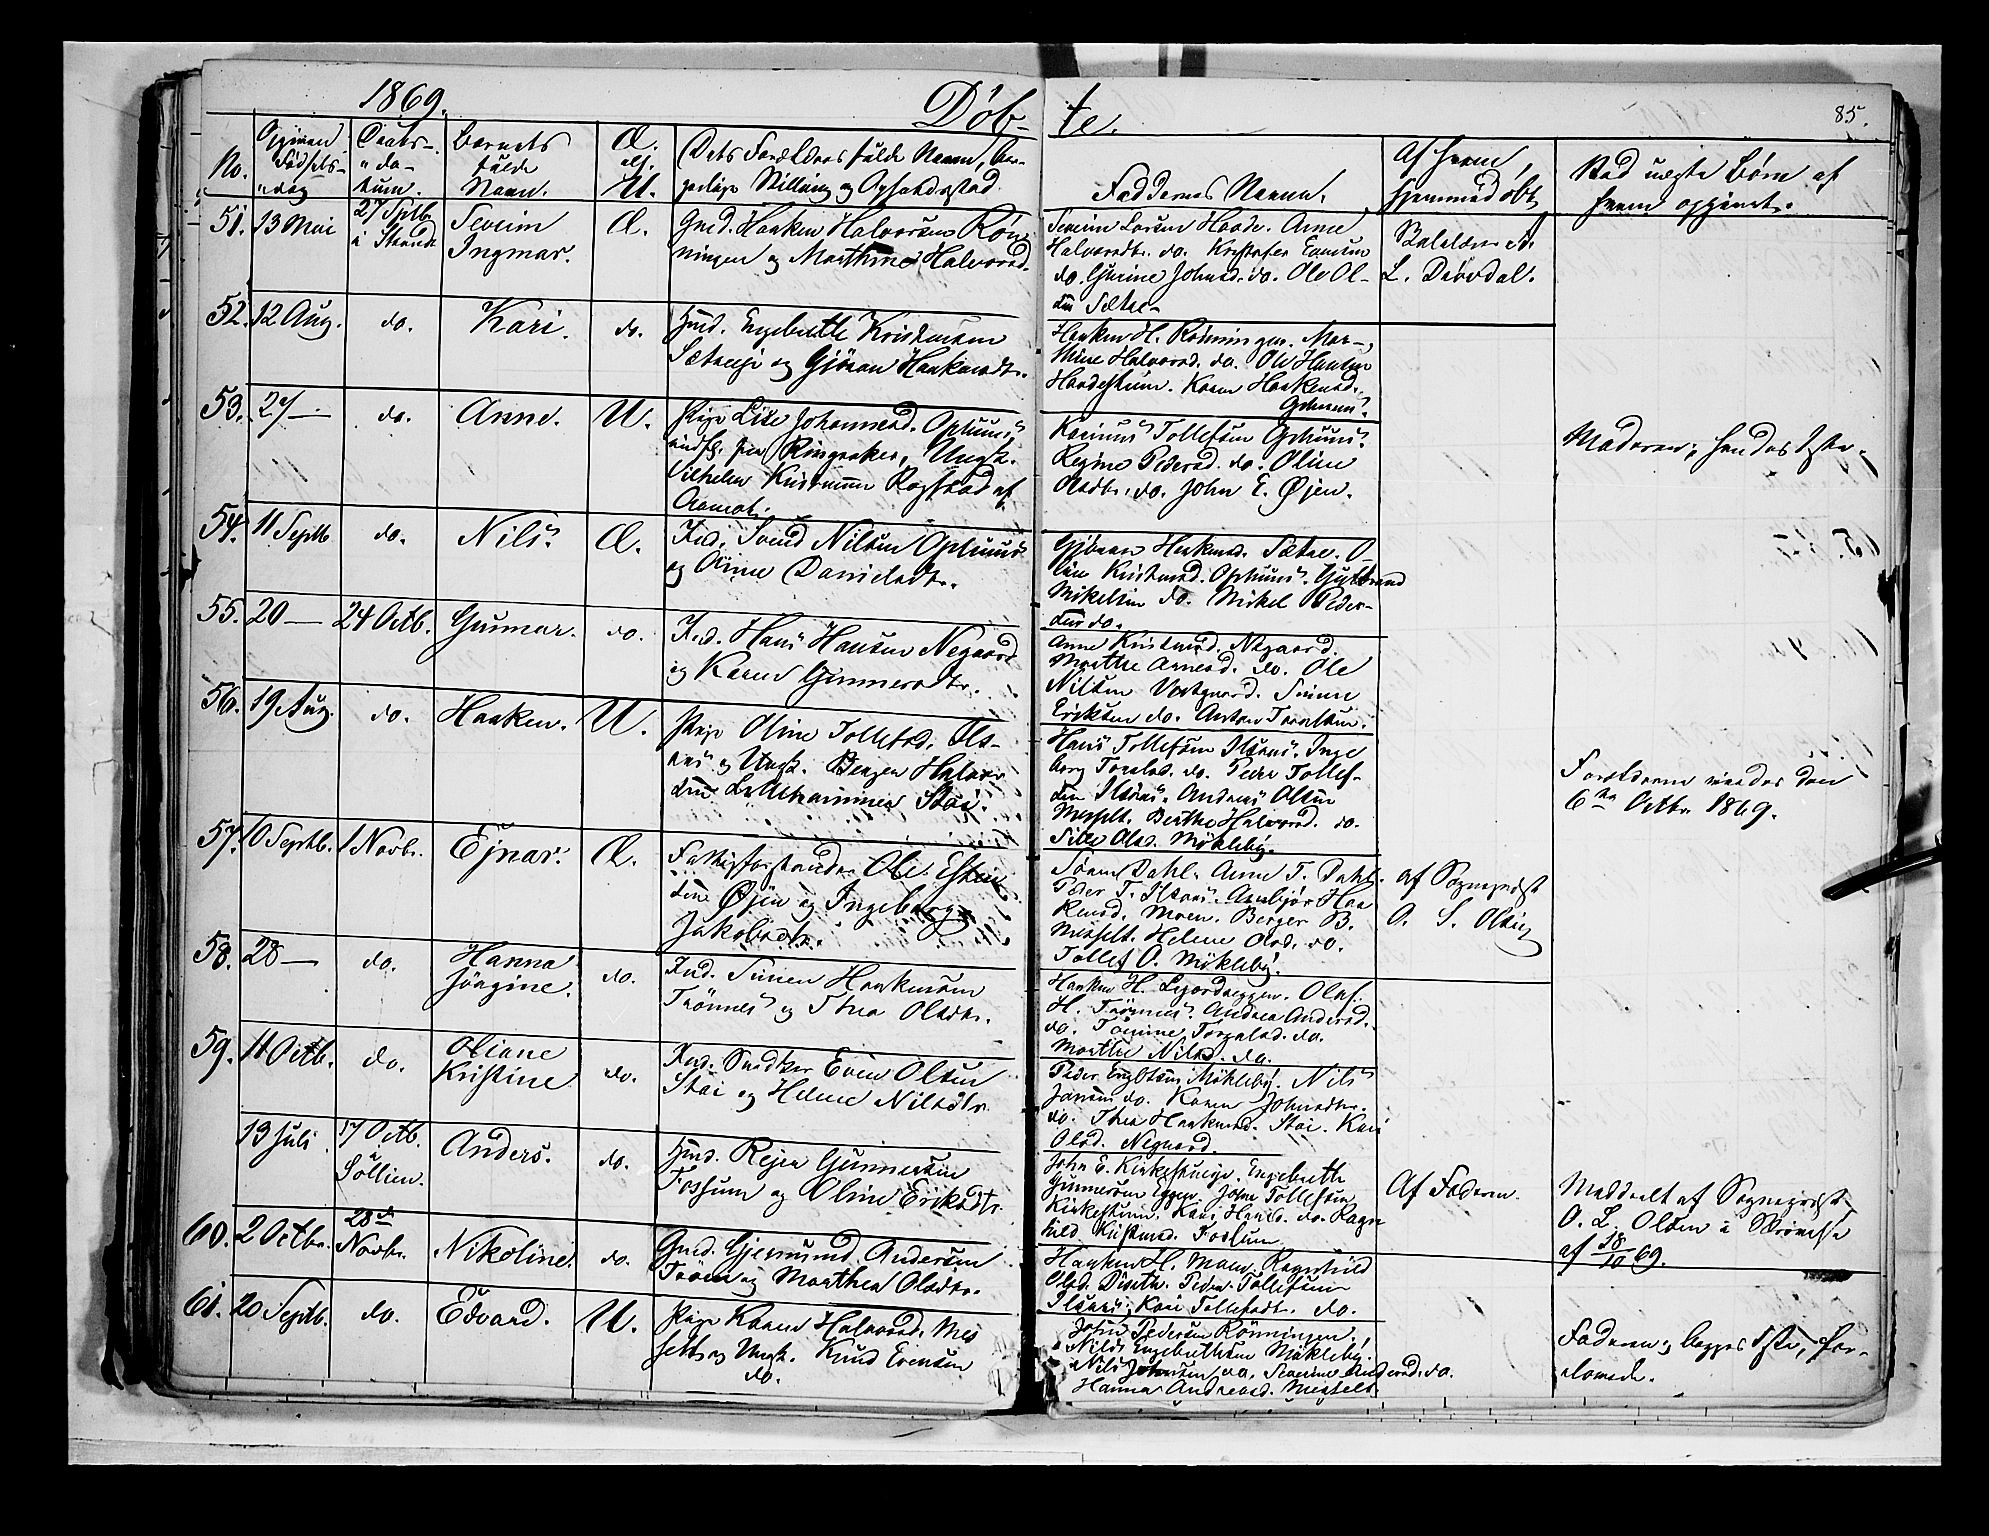 1869.
Döb-
te.
85.
No.
Opgiven
Fødsels-
dag
Daabs-
"da-
tum.
Barnets
fulde
Navn.
Æ.
elf.
U.
Dets Forældres fulde Navn, bor-
gerlige Stilling og Opholdssted.
Faddernes Navne.
Af hvem
hjemmedøbt
Ved uægte Børn af
hvem opgivet.
51. 13 Mai
27 Septb.
i Strand
Severin
Ingmar.
Æ.
Gmd. Haaken Halvorsen Røn-
ningen og Marthine Halvorsd.
Severin Larsen Haade. Anne
Halvorsdtr. do. Kristofer Evensen
do. Johnsd. do. Ole Ol-
sen Sætre
L. Drövdal.
52. 12 Aug.
do.
Kari.
do.
Hmd. Engebreth Kristensen
og Gjöran Haakensdtr.
Haaken H. Rønningen. Mar-
thine Halvorsd. do. Ole Hansen
Karen Haakensd.
53. 27 —
do.
Anne.
U.
Pige Lise Johannesd. Ophuus
indfl. fra Ringsaker, Ungk.
Vilhelm Kristensen af
Aamot.
Karinus Tollefsen Ophuus.
Regine Pedersd. do. Oline
Olsdtr. do. John E. Øjen.
Moderen; hendes 1ste
54. 11 Septb
do.
Nils.
Æ.
Ind. Svend Nilsen Ophuus
og Oline Danielsdtr.
Gjöran Haakensd. Sætre. O-
line Kristensd. Ophuus. Gulbrand
Mikelsen do. Mikel Peder-
sen do.
55. 20 —
24 Octb.
Gunnar.
do.
Ind. Hans Hansen Negaard
og Karen Gunnersdtr.
Anne Kristensd. Negaard.
Marthe Arnesd. do. Ole
Nilsen Vestgaard. Simen
Eriksen do. Anton
56. 19 Aug.
do.
Haaken.
U.
Pige Oline Tollefsd. Ils-
aas og Ungk. Berger Halvor-
sen Stai.
Hans Tollefsen Ilsaas. Inge-
borg do. Peder Tollef-
sen Ilsaas. Andreas Olsen
Messelt. Berthe Halvorsd. do.
Olsd. Mökleby.
Forældrene viedes den
6te Octbr. 1869.
57. 10 Septb.
1 Novbr.
Ejnar.
Æ.
Fattigforstander Ole Esten-
sen Øjen og Ingeborg
Jakobsdtr.
Sören Dahl. Anne T. Dahl.
Peder T. Ilsaas. Haa-
kensd. Moen. Berger B.
Messelt. Helene Olsd. do.
Tollef O. Mökleby.
af Sogneprest
O. S. Olsen
58. 28 —
do.
Hanna
Jörgine.
do.
Ind. Simen Haakensen
Trönnes og Thea Olsdtr.
Haaken H. Olaf.
H. Trönnes. Andrea Andersd.
do. do.
Marthe Nilsd. do.
59. 11 Octb.
do.
Oliane
Kristine
do.
Ind. Snedker Even Olsen
Stai og Helene Nilsdtr.
Peder Engbtsen Mökleby. Nils
Jansen do. Karen Johnsdtr.
do. Thea Haakensd. Stai. Kari
Olsd. Negaard.
13 Juli.
17 Octb.
i
Sollien.
Anders.
do.
Hmd. Rejer Gunnersen
Fossum og Oline Eriksdtr.
John E. Kirkestuen. Engebreth
Gunnersen Eggen. John Tollefsen
Kirkestuen. Kari Hansd. do. Ragn-
hild Kristensd. Fossum
Af Faderen.
Meddeelt af Sogneprest
O. L. Olsen i
af 18/10 69.
60. 2 Octbr.
28de
Novbr.
Nikoline.
do.
Gmd. Gjermund Andersen
Tröen og Marthea Olsdtr.
Haaken H. Moen. Ragnhild
Olsd. Peder Tollefsen
Ilsaas; Kari Tollefsdtr. do.
61. 20 Septb.
do.
Edvard.
U.
Pige Karen Halvorsd. Mes-
selt og Ungk. Knud Evensen
do.
John Pedersen Rönningen.
Nils Engebrethsen Mökleby.
Nils Johnsen do. Severine Andersd. do.
Hanna Andreasd. Messelt.
Faderen; begges 1ste, for-
lovede.